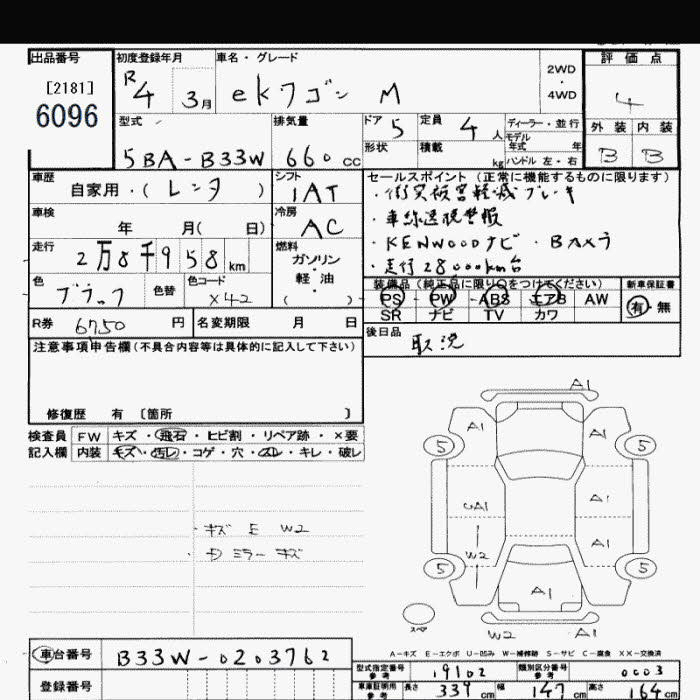 出品番号
[2181]
6096
初度登録年月
R4 3月
車名・グレード
ekワゴン M
2WD
・
4WD
評価点
4
型式
5BA-B33W
排気量
660 cc
ドア 5
定員 4人
ディーラー・並行
モデル
年式 年
形状
積載 kg
ハンドル 左・右
外装 内装
B B
車歴
自家用・(レンタ)
シフト
IAT
セールスポイント (正常に機能するものに限ります)
・衝突被害軽減ブレーキ
・車線逸脱警報
・KENWOODナビ・Bカメラ
・走行28000km台
車検
年 月( 日)
冷房
AC
走行
2万8千958km
燃料
ガソリン
・
軽・油
( )
色
ブラック
色替
色コード
X42
装備品 (純正品に限り○をつけてください)
PS PW ABS エアB AW
SR ナビ TV カワ
新車保証書
有・無
R券 6750 円
名変期限 月 日
後日品
取説
注意事項申告欄(不具合内容等は具体的に記入して下さい)
修復歴 有 〔箇所 〕
検査員 FW キズ・飛石・ヒビ割・リペア跡・×要
記入欄 内装 キズ・汚レ・コゲ・穴・スレ・キレ・破レ
・キズ E W2
・Dミラー キズ
A1
A1 A1
5 5
UA1 A1
W2 A1
5 5
A1
スペア
W2 A1
A-キズ E-エクボ U-凹み W-補修跡 S-サビ C-腐食 XX-交換済
車台番号
B33W-0203762
登録番号
型式指定番号
参考
19102
類別区分番号
参考
0003
車庫証明用
参考
長さ 339 cm
幅 147 cm
高さ 164 cm